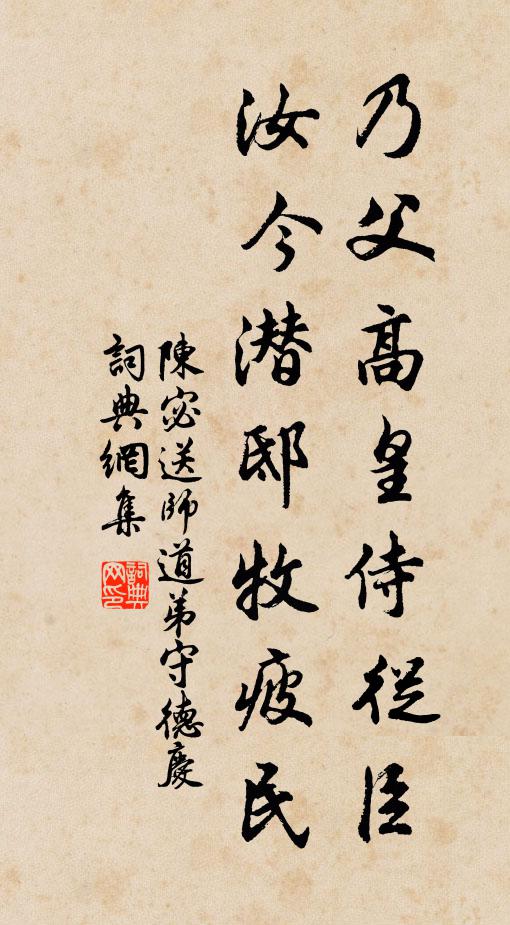 乃父高皇侍從臣
汝今潜邸牧疲民
陳宓送師道弟守德慶
詞典網集
詞典
网印